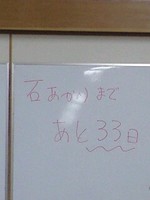 石あかりまで
あと33日